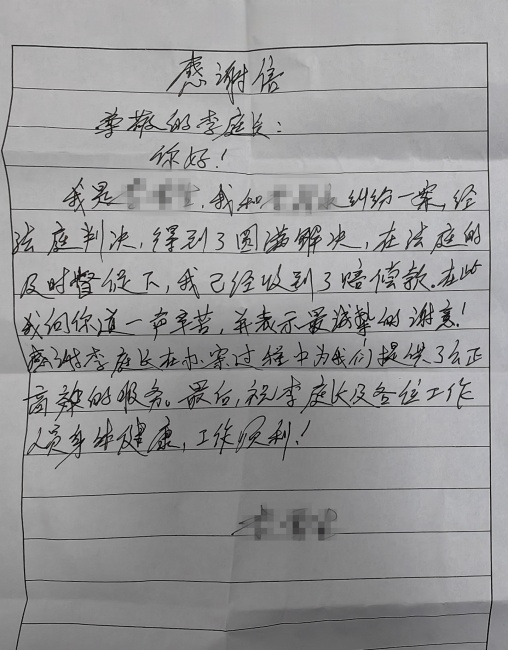 感谢信
尊敬的李庭长：
你好！
我是 ，我和 纠纷一案，经
法庭判决，得到了圆满解决，在法庭的
及时督促下，我已经收到了赔偿款。在此
我向你道一声辛苦，并表示最诚挚的谢意！
感谢李庭长在办案过程中为我们提供了公正
高效的服务。最后，祝李庭长及各位工作
人员身体健康，工作顺利！